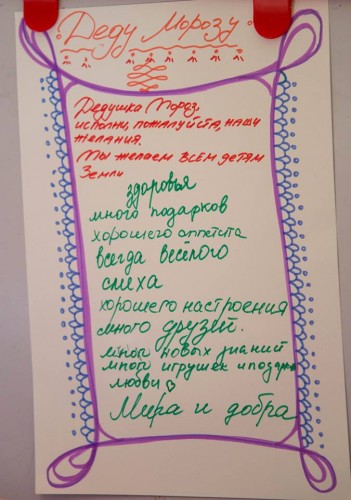 Деду Морозу
Дедушка Мороз,
исполни, пожалуйста, наши
желания.
Мы желаем всем детям
Земли
здоровья
много подарков
хорошего аппетита
всегда весёлого
смеха
хорошего настроения
много друзей.
много новых знаний
много игрушек и подарк
любви
Мира и добра